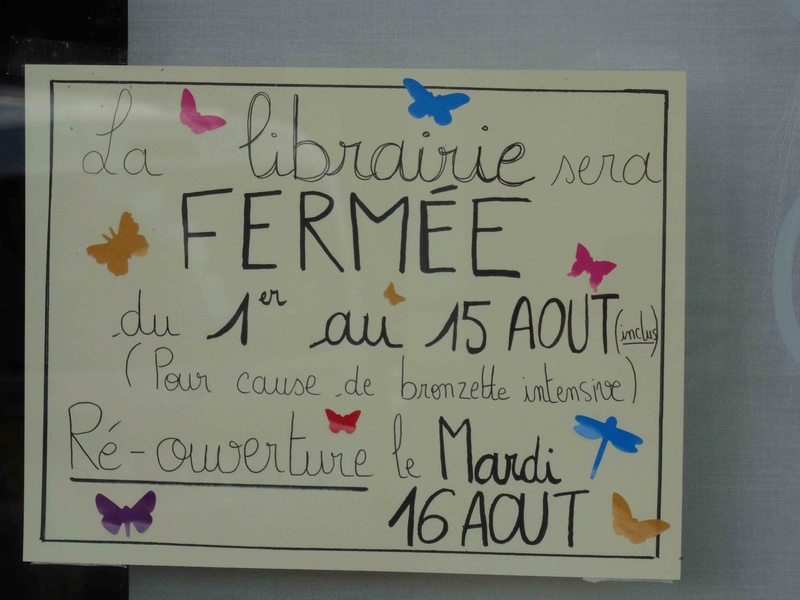 La librairie sera
FERMÉE
du 1er au 15 AOUT (inclus)
(Pour cause de bronzette intensive)
Ré-ouverture le Mardi
16 AOUT